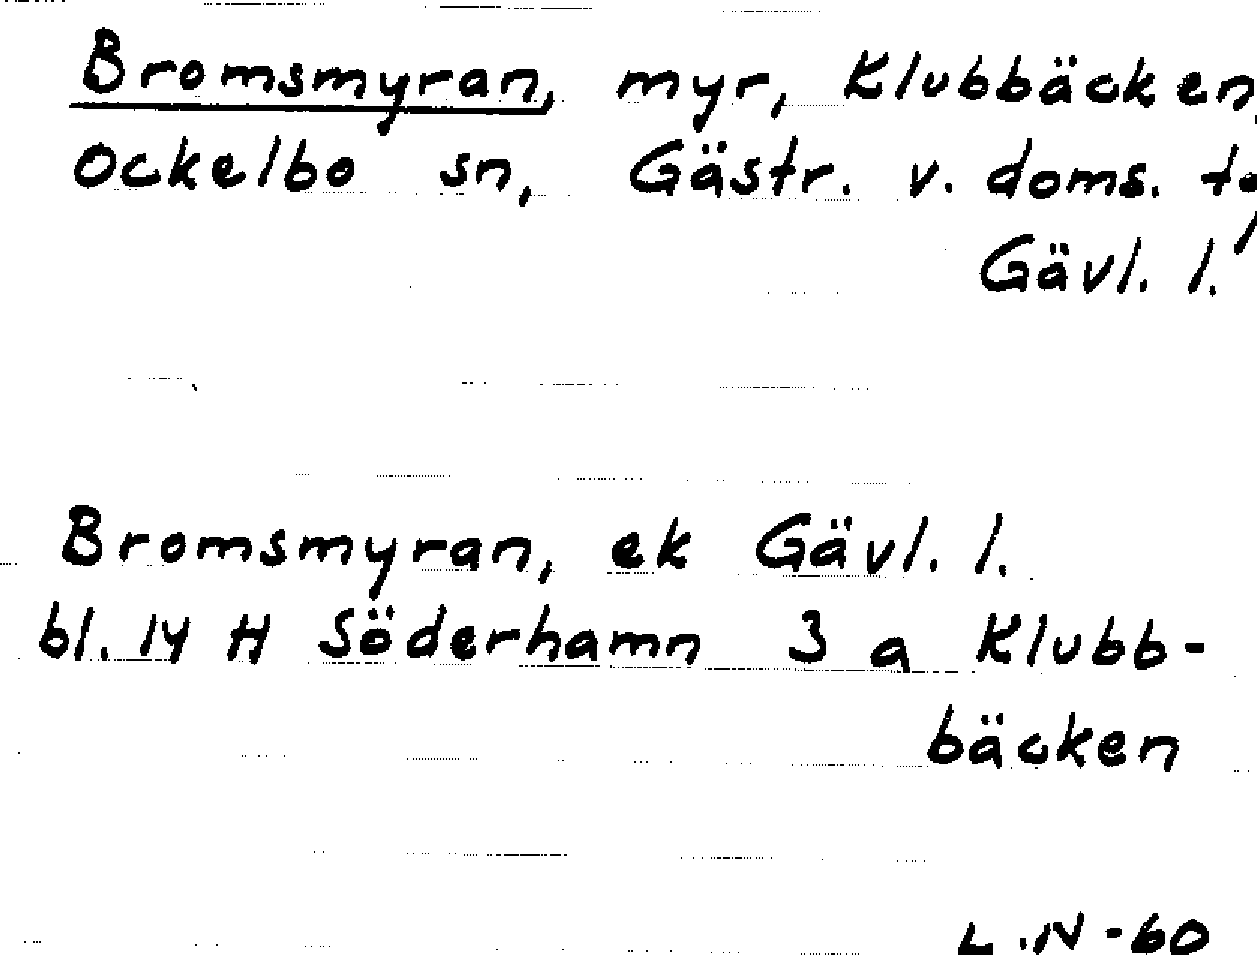 Bromsmyran, myr, Klubbäcken,
Ockelbo sn, Gästr. v. doms. t.,
Gävl. l.
Bromsmyran, ek Gävl. l.
bl. 14 H Söderhamn 3 a Klubb-
bäcken
L.N-60